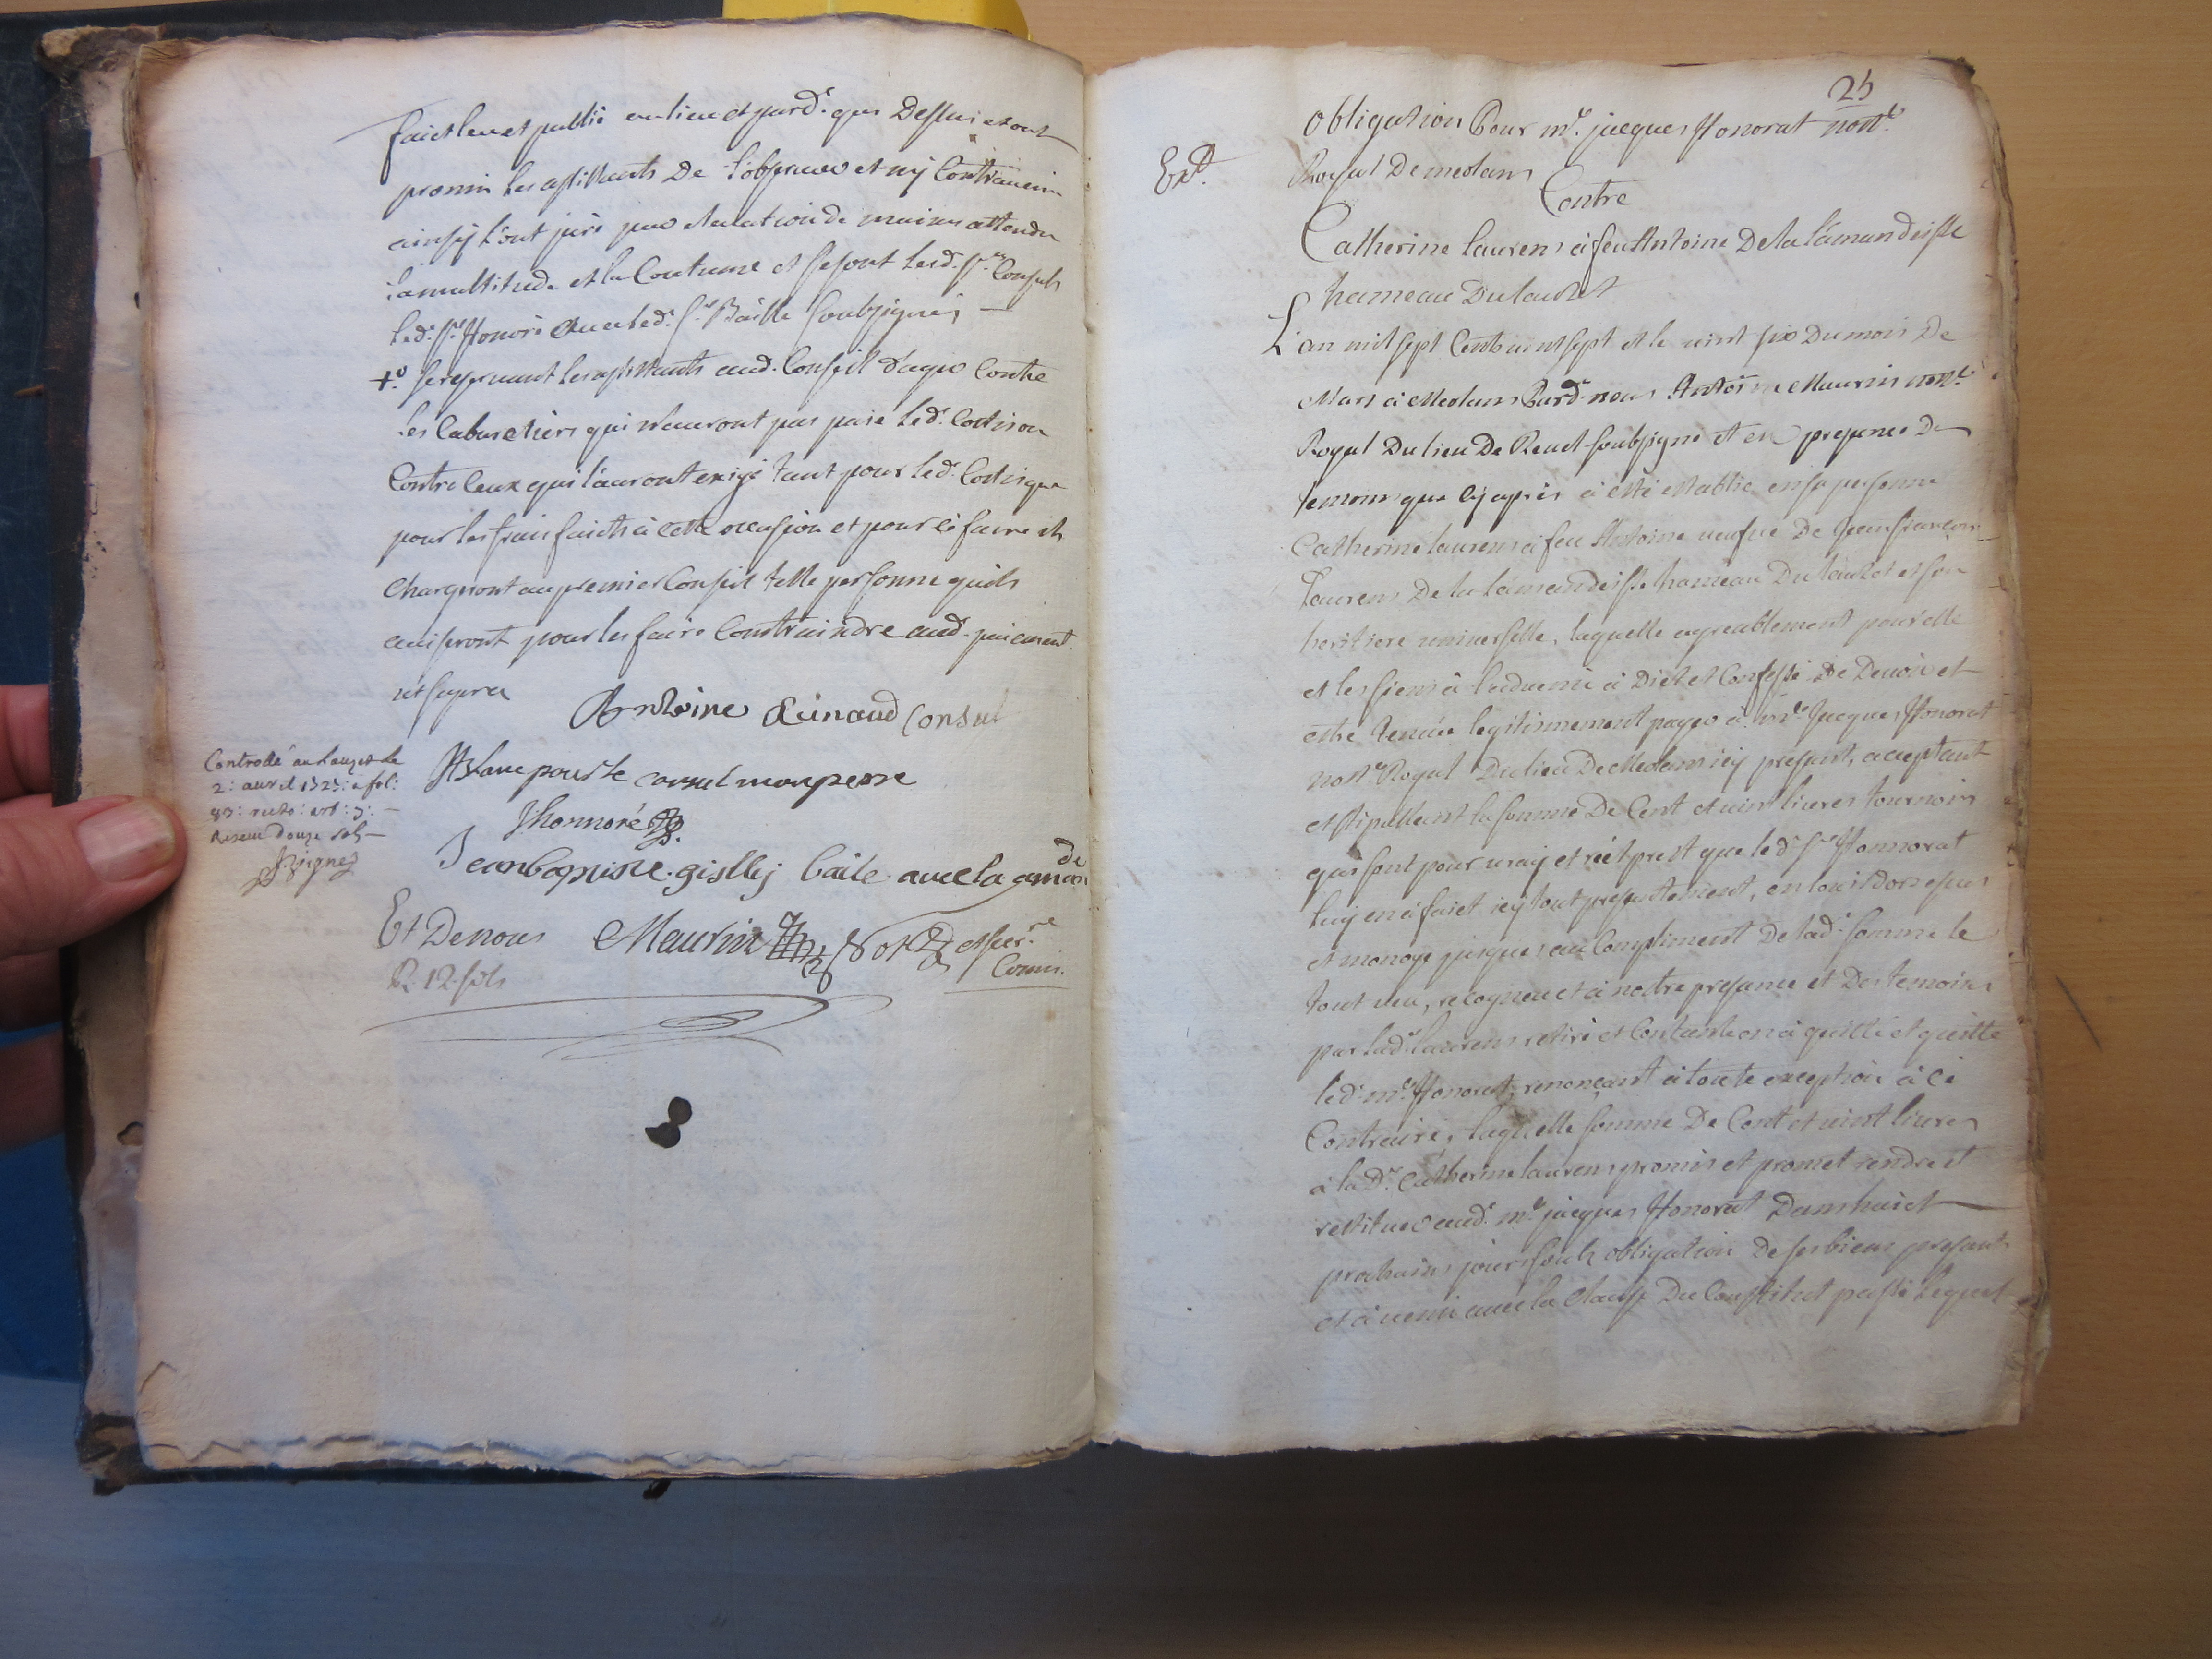 faict leu et publié au lieu et pard.t que Dessus et ont
promis les assistants De l'observer et n'y Contrevenir
ainsÿ l'ont juré par elevation de mains attendu
la multitude et la Coutume et se sont lesd. s.rs Consuls
led. s.r Honoré avec led. s.r Baille soubsignés
+.o se reservant les assistants aud. Conseil d'agir Contre
les Cabaretiers qui n'auront pas paié led. Cottis ou
Contre Ceux qui l'auront exigé tant pour led. Cottis que
pour les frais faicts à cette occasion et pour cé faire ils
Chargeront au premier Conseil telle personne quils
aviseront pour les faire Contraindre aud. paiement
ut supra
Antoine Rinaud Consul
pour le consul mon perre
Jhonnoré
Jean baptiste gislly baile avec la aman
de
Et De nous Maurin Not.re et
Comis.
R. 12 sols
Controllé au Lauzet le
2: avril 1727: a fol:
recto: art: 3:
Receu douze sols
25
Obligation Pour m.e jacques Honorat nott.e
Royal De meolans
Ext.
Contre
Catherine laurens à feu Antoine De la lámandeisse
hameau Du lauzet
L'an mil sept Cents vint sept et le vint six Du mois De
Mars à Meolans Pard.t nous Antoine Maurin nott.e
Royal Du lieu De Revel soubsigné et en presence De
temoins que cy après à esté establie en sa personne
Catherine laurens à feu Antoine veufve De Jean françois
Laurens De la lámandeisse hameau Du lauzet et son
heritiere universelle, laquelle agreablement pour elle
et les siens à l'advenir à Dict et Confessé De Devoir et
estre tenüe legitimement payer à m.e Jacques Honorat
nott.e Royal Du lieu De Meolans icy présent, acceptant
et stipullant la somme De Cent et vint livres tournois
qui sont pour vray et réel prest que led. s.r Honnorat
luy en à faict icy tout presentement, en louis d'or escus
et monoye jusques au Compliment De lad. somme le
tout veu, recogneu et à nostre presence et Des temoins
par lad. laurens retiré et Contante en à quitté et quitte
led. m.e Honorat, renonçant à toute exception à cé
Contraire, laquelle somme De Cent et vint livres
à la D.e Catherine laurens promis et promet rendre et
restituer aud. m.e jacques Honorat Dans huict
prochains jours soubs obligation De ses biens présents
et à venir avec la Clause Du Constitut passé lequel